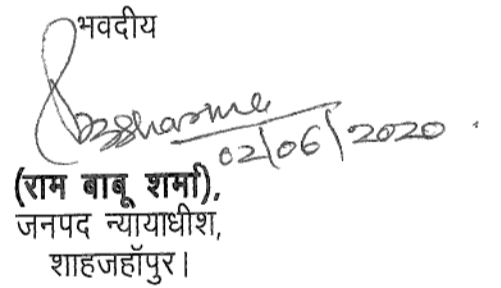 भवदीय
RBSharma
02/06/2020
(राम बाबू शर्मा),
जनपद न्यायाधीश,
शाहजहाँपुर।